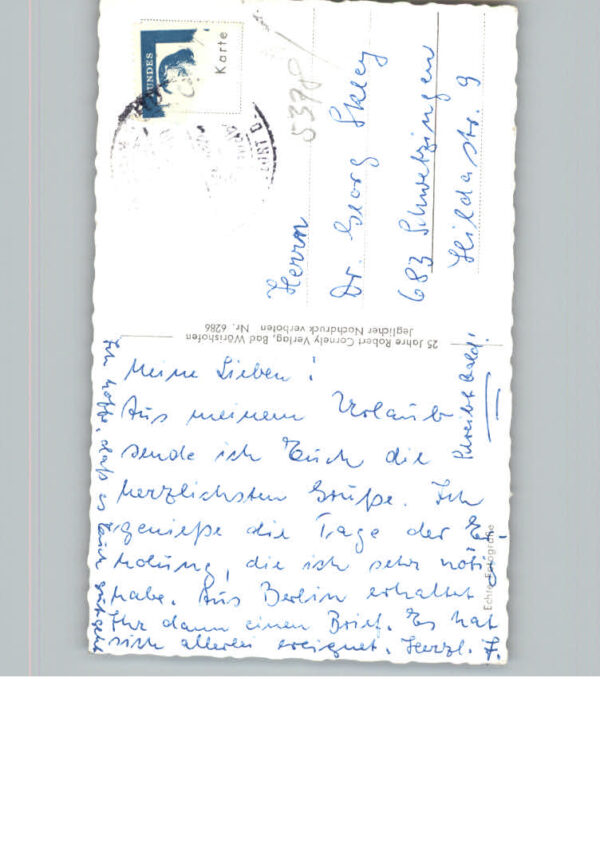 BUNDES
Karte
5378
Herrn
Dr. Georg
683 Schwetzingen
Hildastr. 9
25 Jahre Robert Cornely Verlag, Bad Wörishofen
Jeglicher Nachdruck verboten Nr. 6286
Echte Fotografie
Meine Lieben!
Aus meinem Urlaub
sende ich Euch die
herzlichsten Grüße. Ich
genieße die Tage der Er-
holung, die ich sehr nötig
habe. Aus Berlin erhaltet
Ihr dann einen Brief. Es hat
sich allerlei ereignet. Herzl. I.
Ich hoffe, daß es Euch gut geht
Schreibt bald!